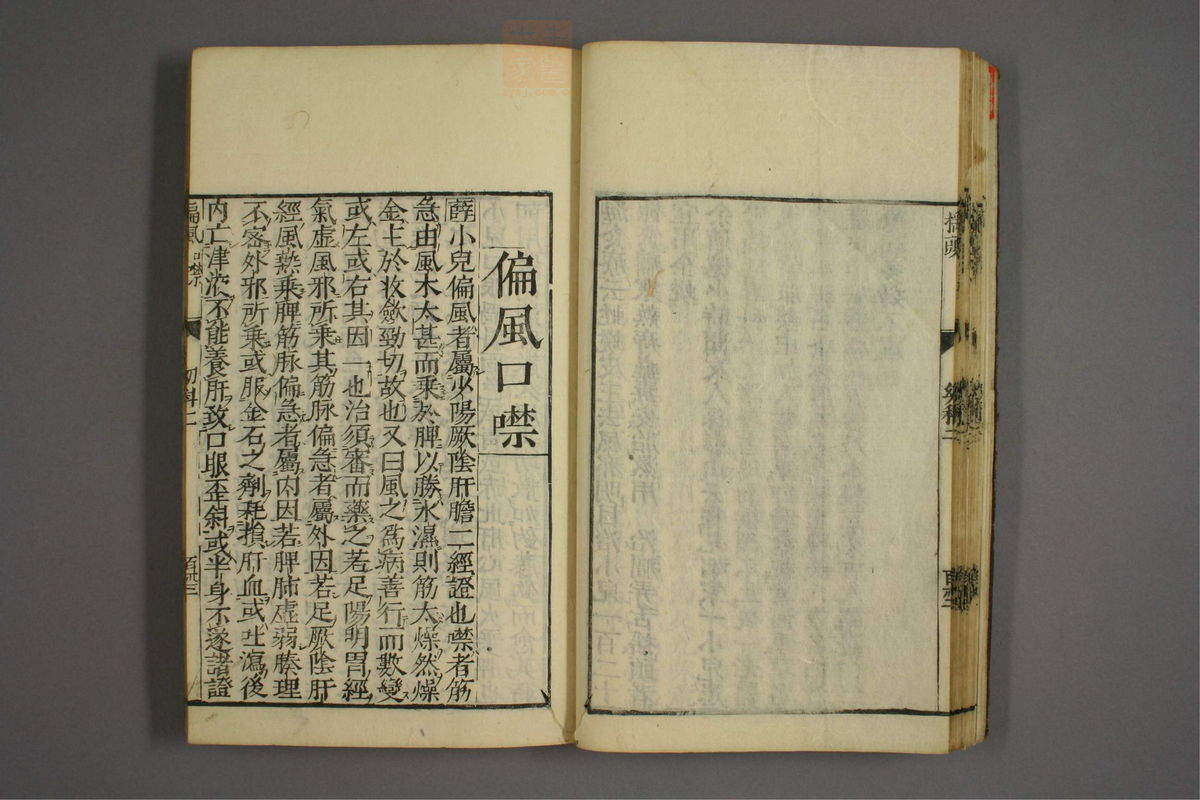 搖頭
幼科二
偏風口噤
薛小兒偏風者屬少陽厥陰肝膽二經證也噤者筋
急由風木太甚而乘於脾以勝水濕則筋太燥然燥
金主於收斂勁切故也又曰風之爲病善行而數變
或左或右其因一也治須審而藥之若足陽明胃經
氣虛風邪所乘其筋脉偏急者屬外因若足厥陰肝
經風熱乘脾筋脉偏急者屬內因若脾肺虛弱腠理
不密外邪所乘或服金石之劑耗損肝血或吐瀉後
內亡津液不能養肝致口眼歪斜或半身不遂諸證
偏風口噤
幼科二